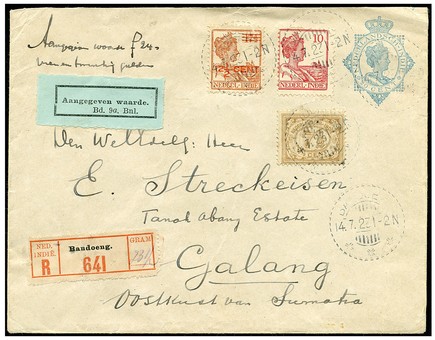 Aangegeven waarde f 24.-
vier en twintig gulden
Aangegeven waarde.
Bd. 9a. Bnl.
12½ CENT
NEDERL-INDIË
10
NEDERL-INDIË
NEDERLANDSCH-INDIË
CENT
4.7.22 1-2N
Den Weledelg: Heer
E. Streckeisen
Tanah Abang Estate
Galang
Oostkust van Sumatra
14.7.22 1-2N
NED.
INDIË.
R
Bandoeng.
641
GRAM